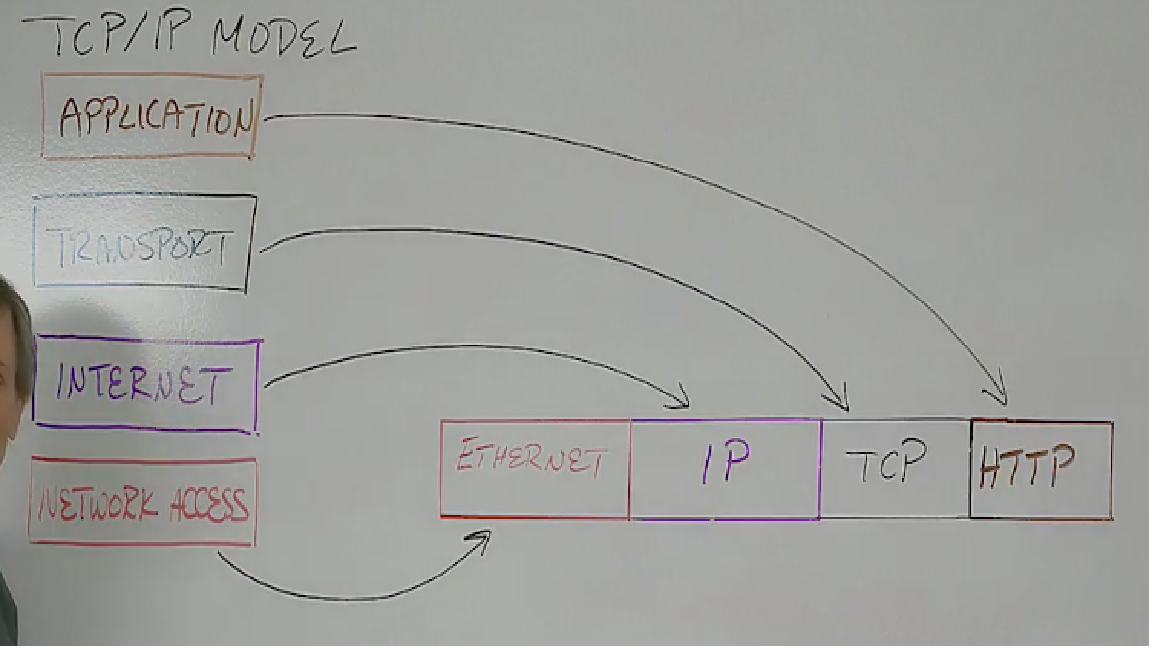 TCP/IP MODEL
APPLICATION
TRANSPORT
INTERNET
NETWORK ACCESS
ETHERNET IP TCP HTTP